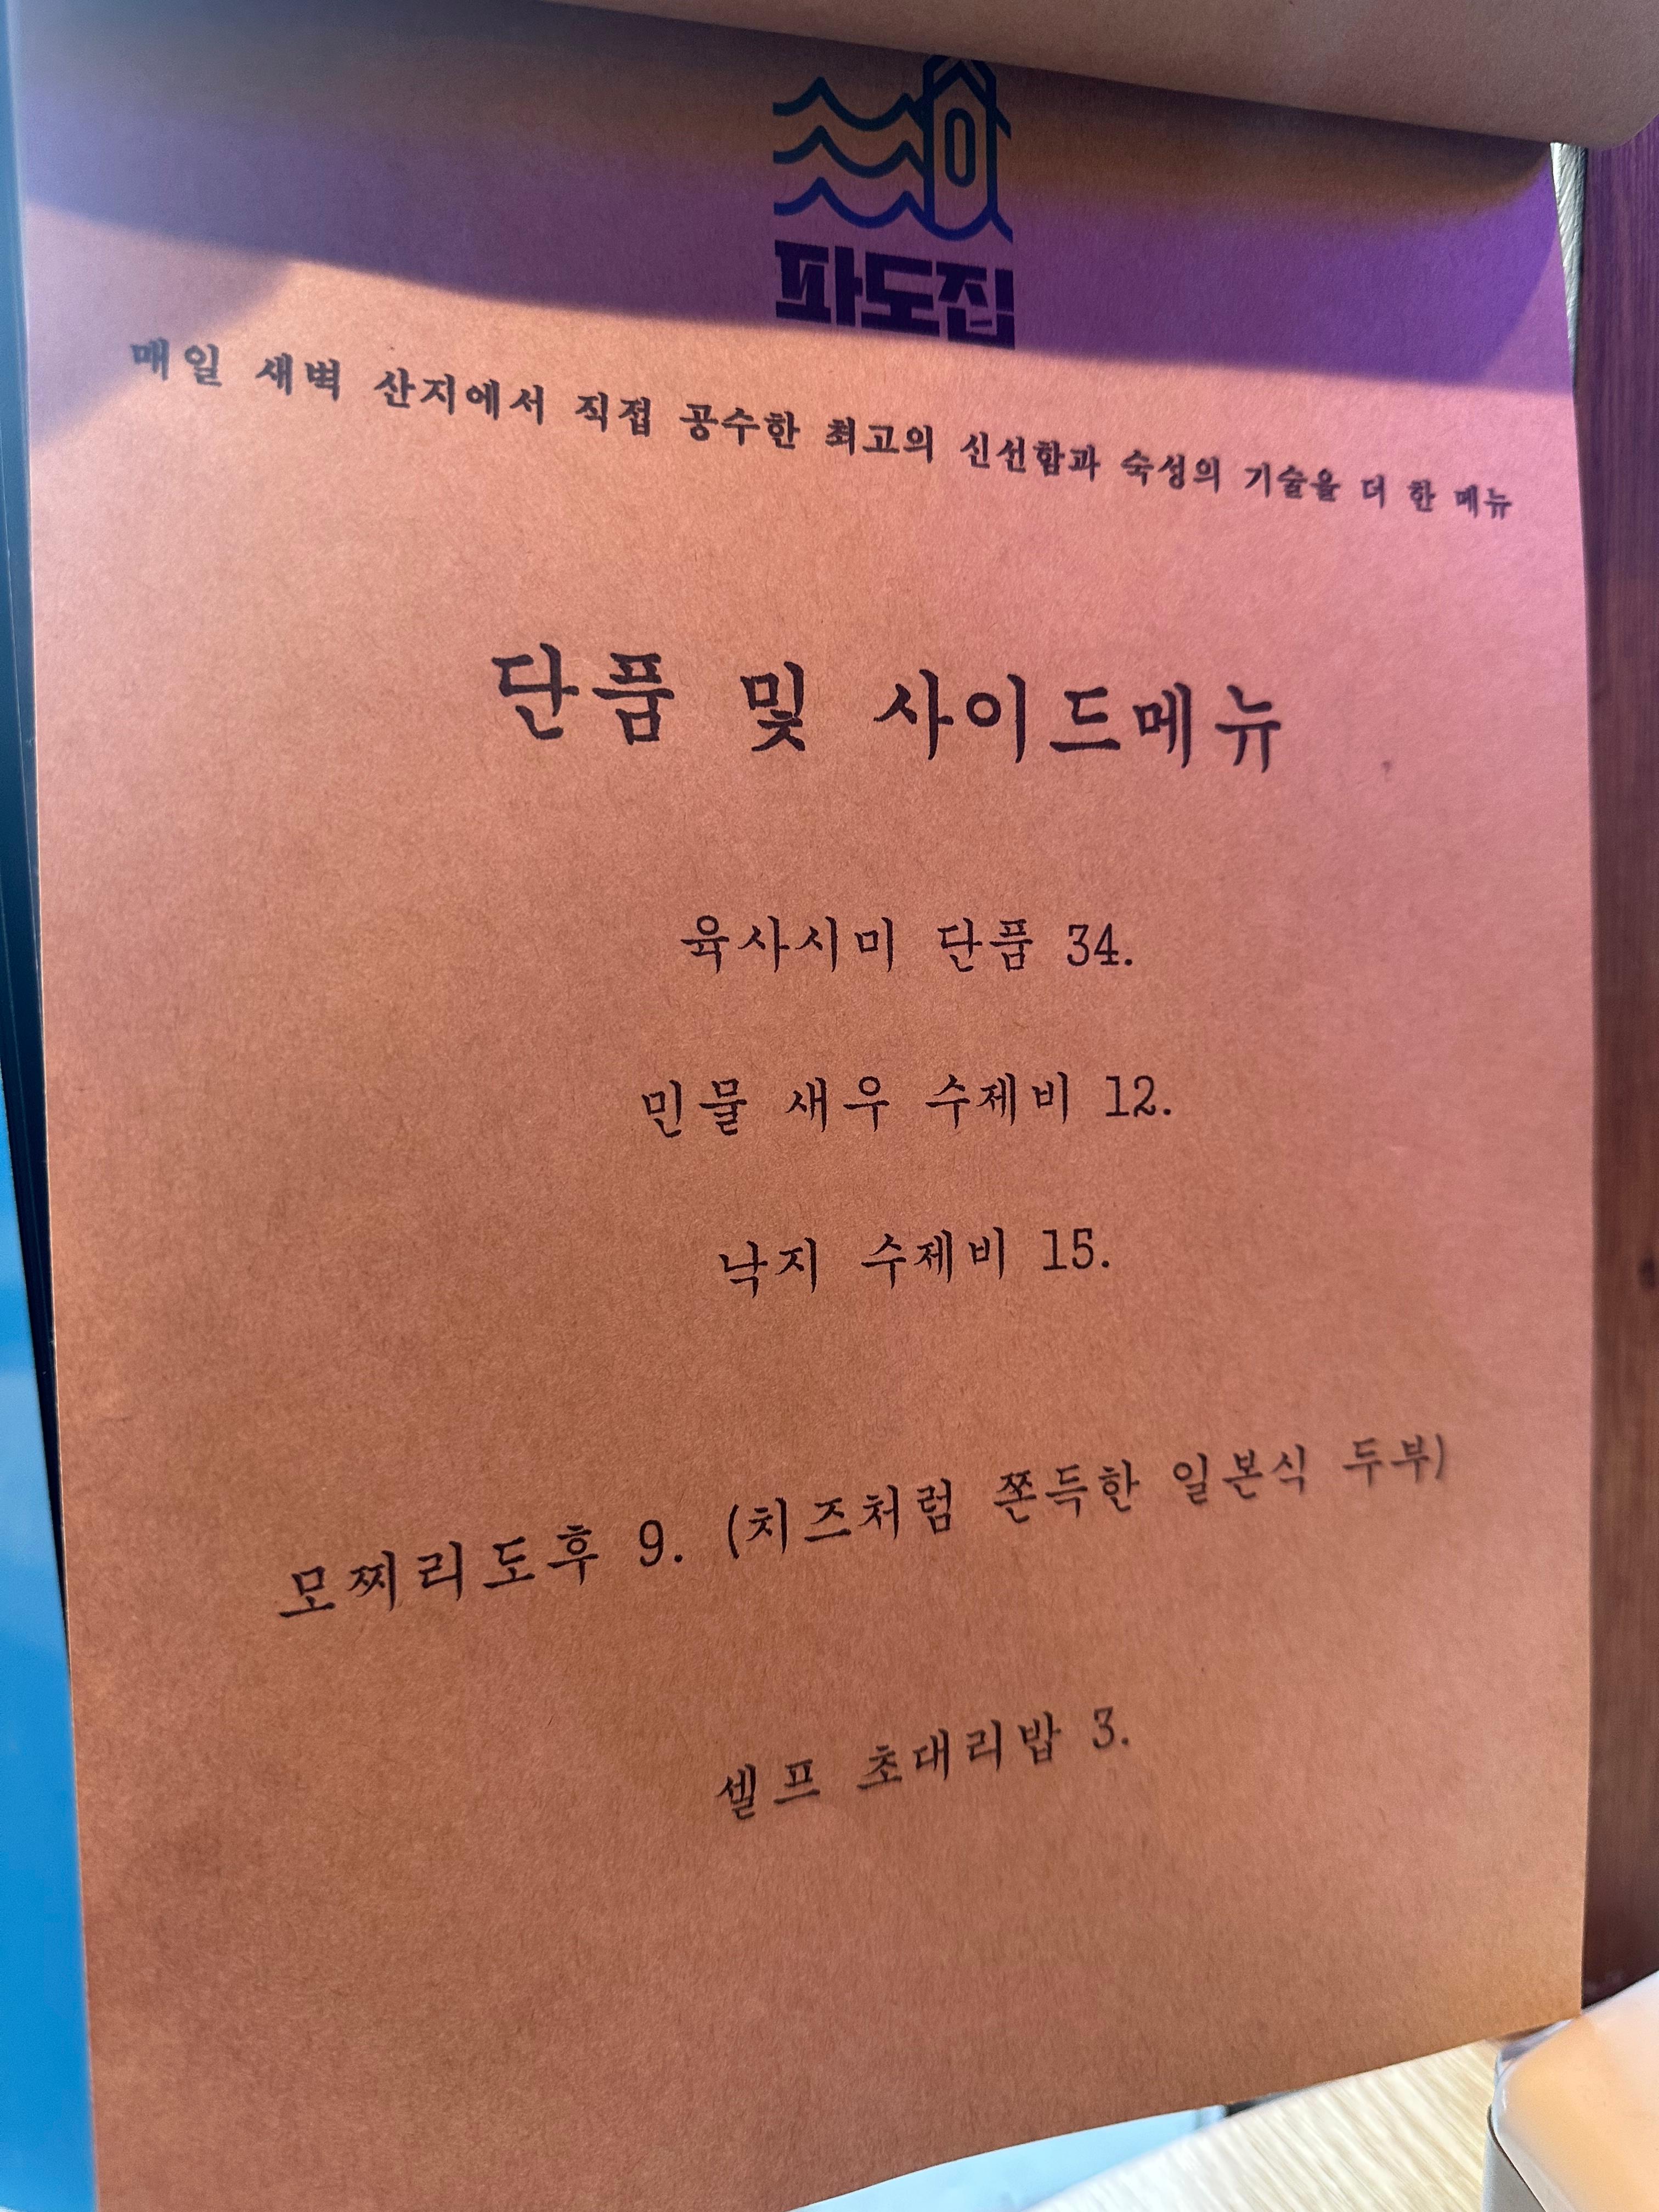 파도집
매일 새벽 산지에서 직접 공수한 최고의 신선함과 숙성의 기술을 더 한 메뉴
단품 및 사이드메뉴
육사시미 단품 34.
민물 새우 수제비 12.
낙지 수제비 15.
모찌리도후 9. (치즈처럼 쫀득한 일본식 두부)
셀프 초대리밥 3.